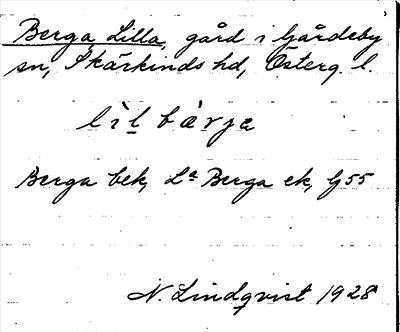 Berga, Lilla, gård i Gårdeby
sn, Skärkinds hd, Österg. l.
lìl bærja
Berga bek, La Berga ek, G55
N. Lindqvist 1928